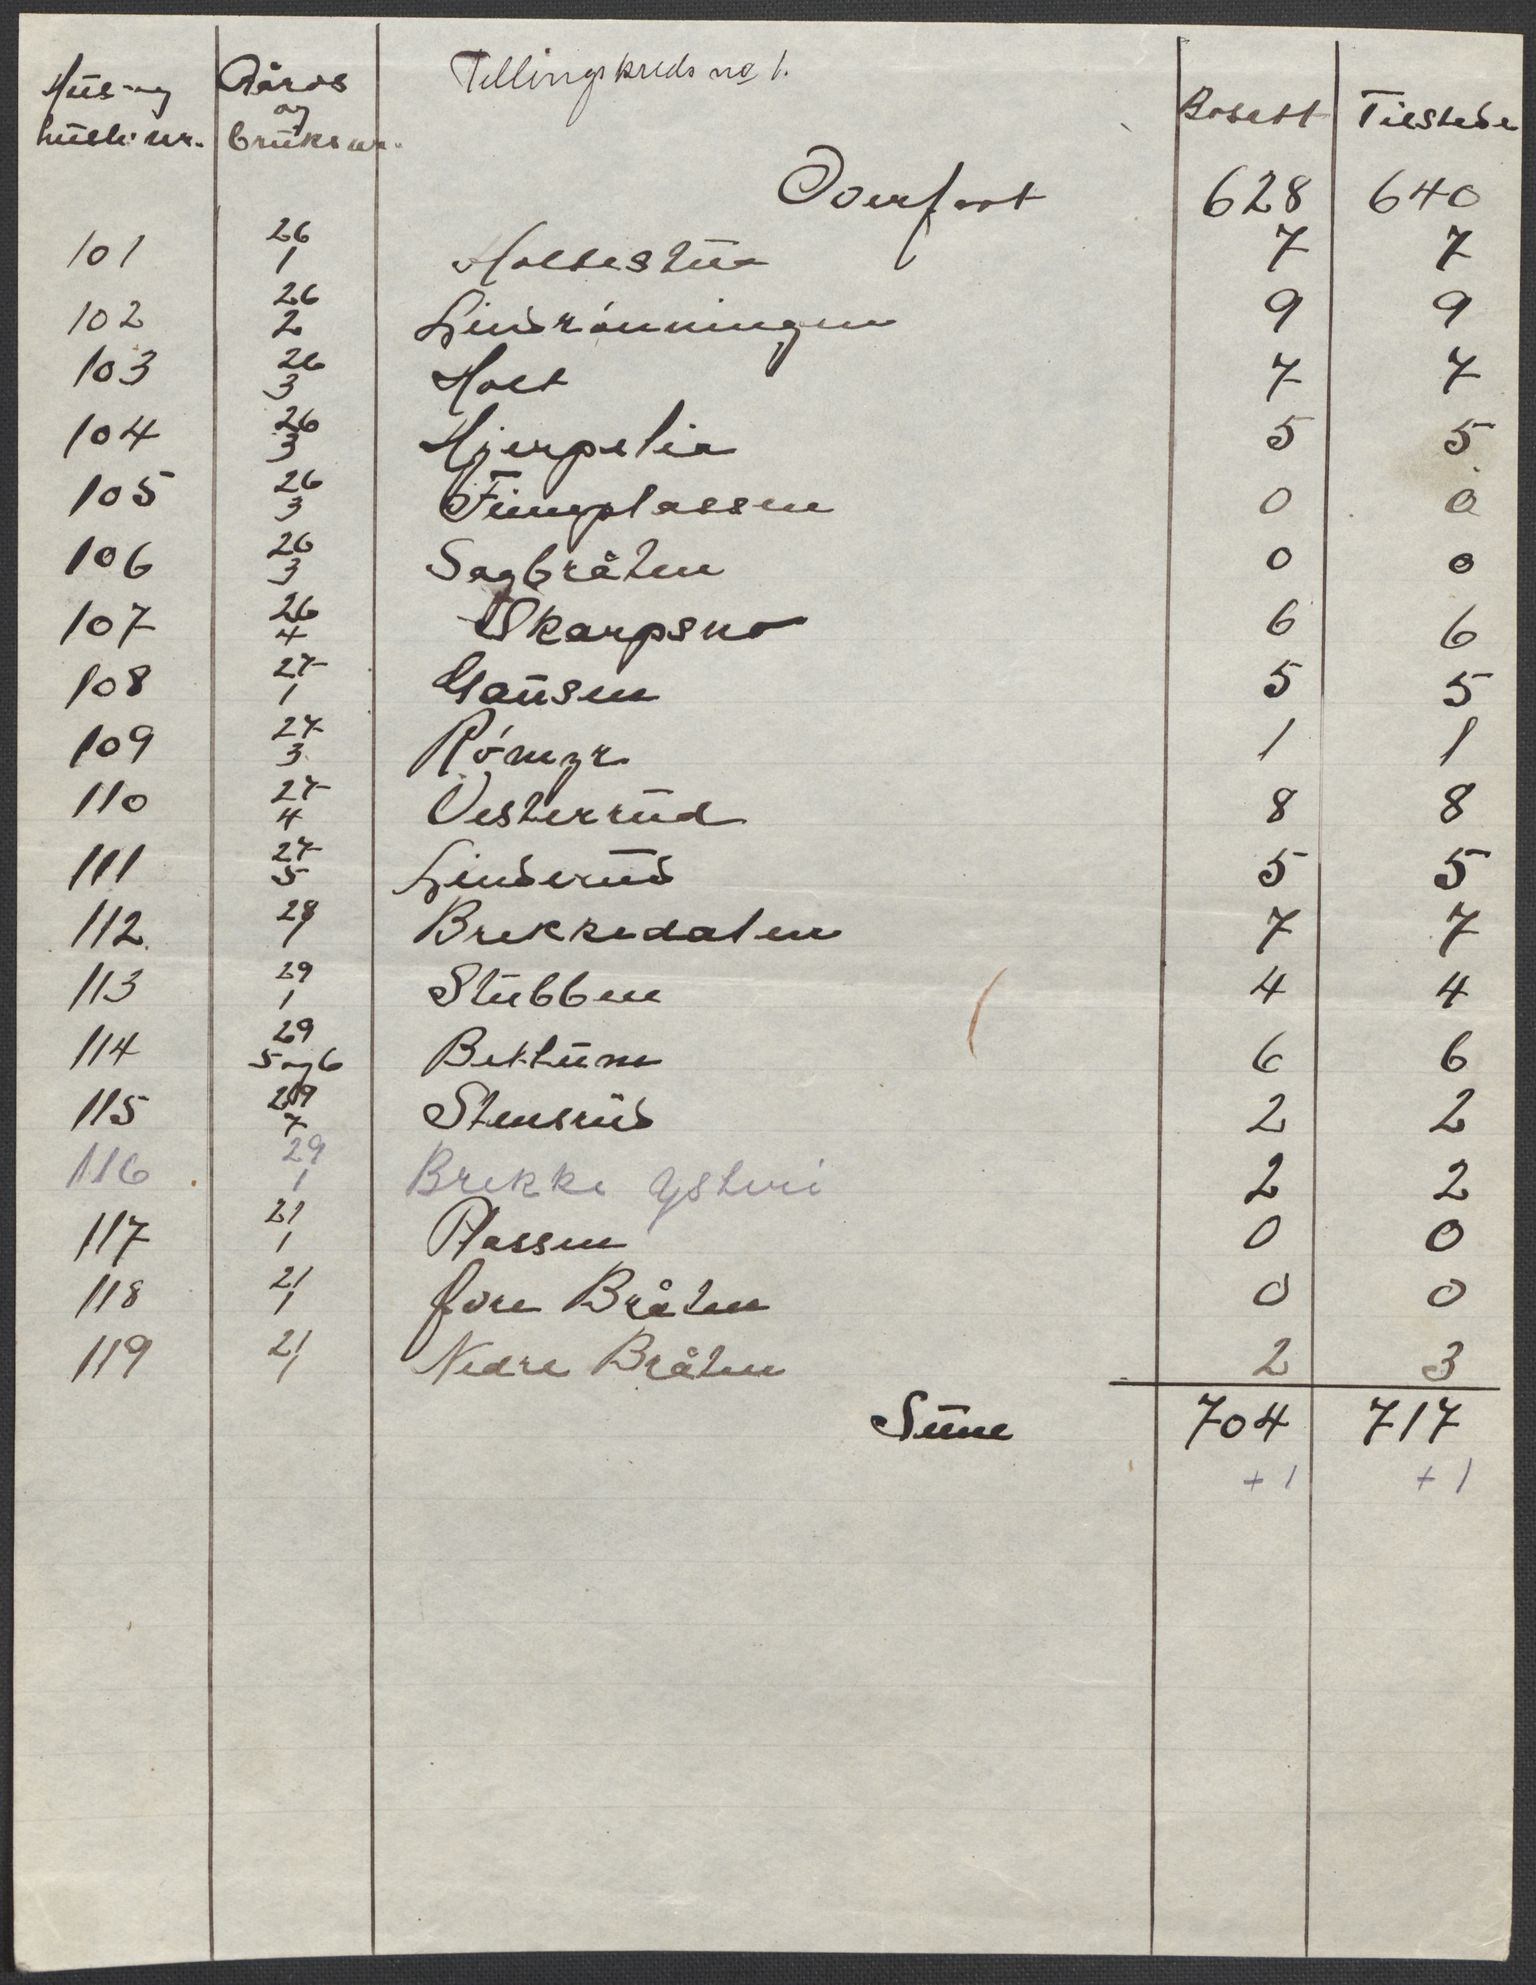 Tellingskreds no 1.
Hus- og husli. nr. Gårds og bruks nr. Bosatt Tilstede
Overført 628 640
101 26/1 Holtestua 7 7
102 26/2 Lindrönningen 9 9
103 26/3 Holt 7 7
104 26/3 Hjerpelia 5 5
105 26/3 Finnplassen 0 0
106 26/3 Sagbråten 0 0
107 26/4 Skarpsno 6 6
108 27/1 Gausen 5 5
109 27/3 Römyr 1 1
110 27/4 Vesterrud 8 8
111 27/5 Linderud 5 5
112 28/1 Brekkedalen 7 7
113 29/1 Stubben 4 4
114 29/5 og 6 Bettum 6 6
115 29/7 Stensrud 2 2
116 29/1 Brekke Ysteri 2 2
117 21/1 Plassen 0 0
118 21/1 Bråten 0 0
119 21/1 Nedre Bråten 2 3
Sum 704 717
+1 +1